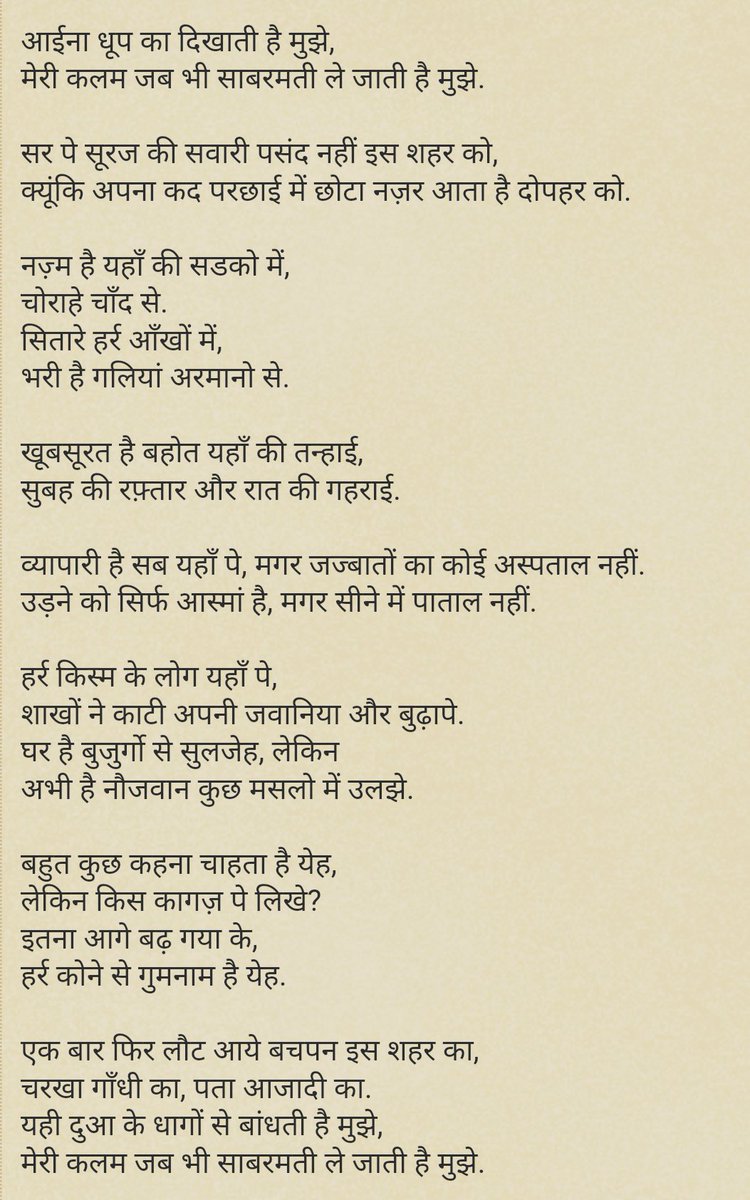 आईना धूप का दिखाती है मुझे,
मेरी कलम जब भी साबरमती ले जाती है मुझे.
सर पे सूरज की सवारी पसंद नहीं इस शहर को,
क्यूंकि अपना कद परछाई में छोटा नज़र आता है दोपहर को.
नज़्म है यहाँ की सडको में,
चोराहे चाँद से.
सितारे हर्र आँखों में,
भरी है गलियां अरमानो से.
खूबसूरत है बहोत यहाँ की तन्हाई,
सुबह की रफ़्तार और रात की गहराई.
व्यापारी है सब यहाँ पे, मगर जज्बातों का कोई अस्पताल नहीं.
उड़ने को सिर्फ आस्मां है, मगर सीने में पाताल नहीं.
हर्र किस्म के लोग यहाँ पे,
शाखों ने काटी अपनी जवानिया और बुढ़ापे.
घर है बुजुर्गो से सुलजेह, लेकिन
अभी है नौजवान कुछ मसलो में उलझे.
बहुत कुछ कहना चाहता है येह,
लेकिन किस कागज़ पे लिखे?
इतना आगे बढ़ गया के,
हर्र कोने से गुमनाम है येह.
एक बार फिर लौट आये बचपन इस शहर का,
चरखा गाँधी का, पता आजादी का.
यही दुआ के धागों से बांधती है मुझे,
मेरी कलम जब भी साबरमती ले जाती है मुझे.